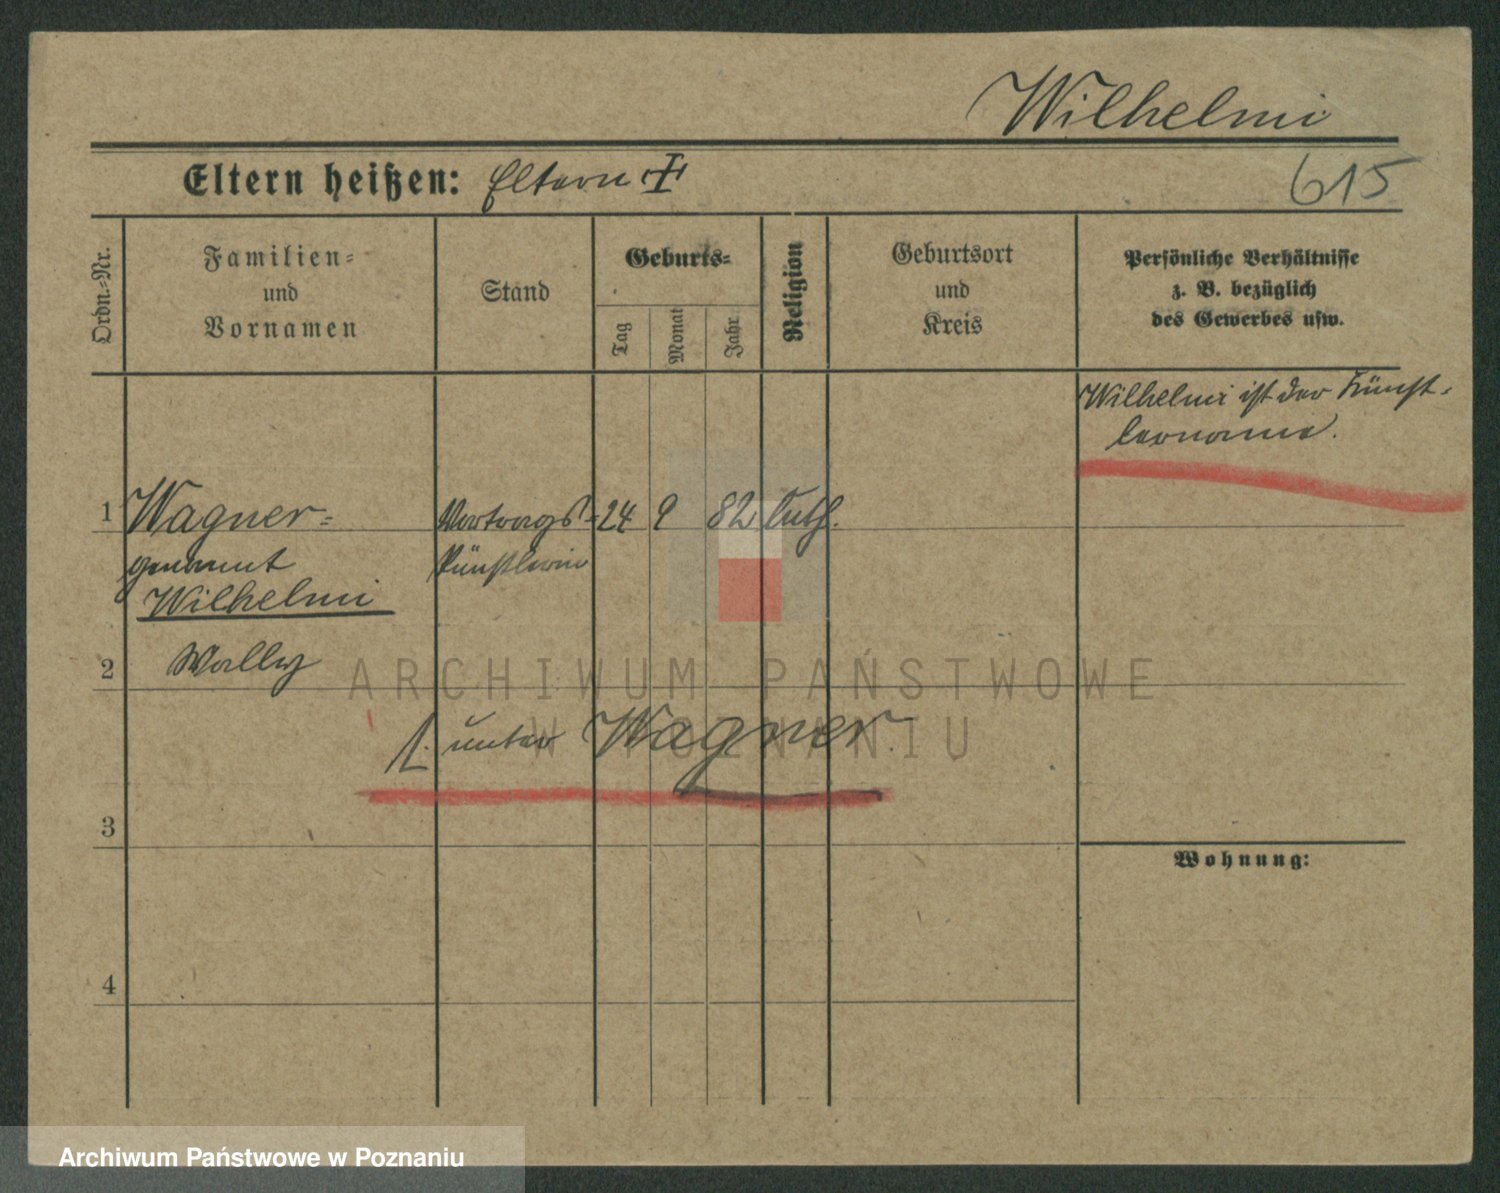 Wilhelmi
Eltern heißen: Eltern ✝
615
Ordn.-Nr.
Familien-
und
Vornamen
Stand
Geburts-
Tag
Monat
Jahr
Religion
Geburtsort
und
Kreis
Persönliche Verhältnisse
z. B. bezüglich
des Gewerbes usw.
Wilhelmi ist der Künst-
lername.
1 Wagner- Vortrags- 24 9 82 luth.
genannt künstlerin
Wilhelmi
2 Wally
ARCHIWUM PAŃSTWOWE
W POZNANIU
s. unter Wagner.
3
Wohnung:
4
Archiwum Państwowe w Poznaniu